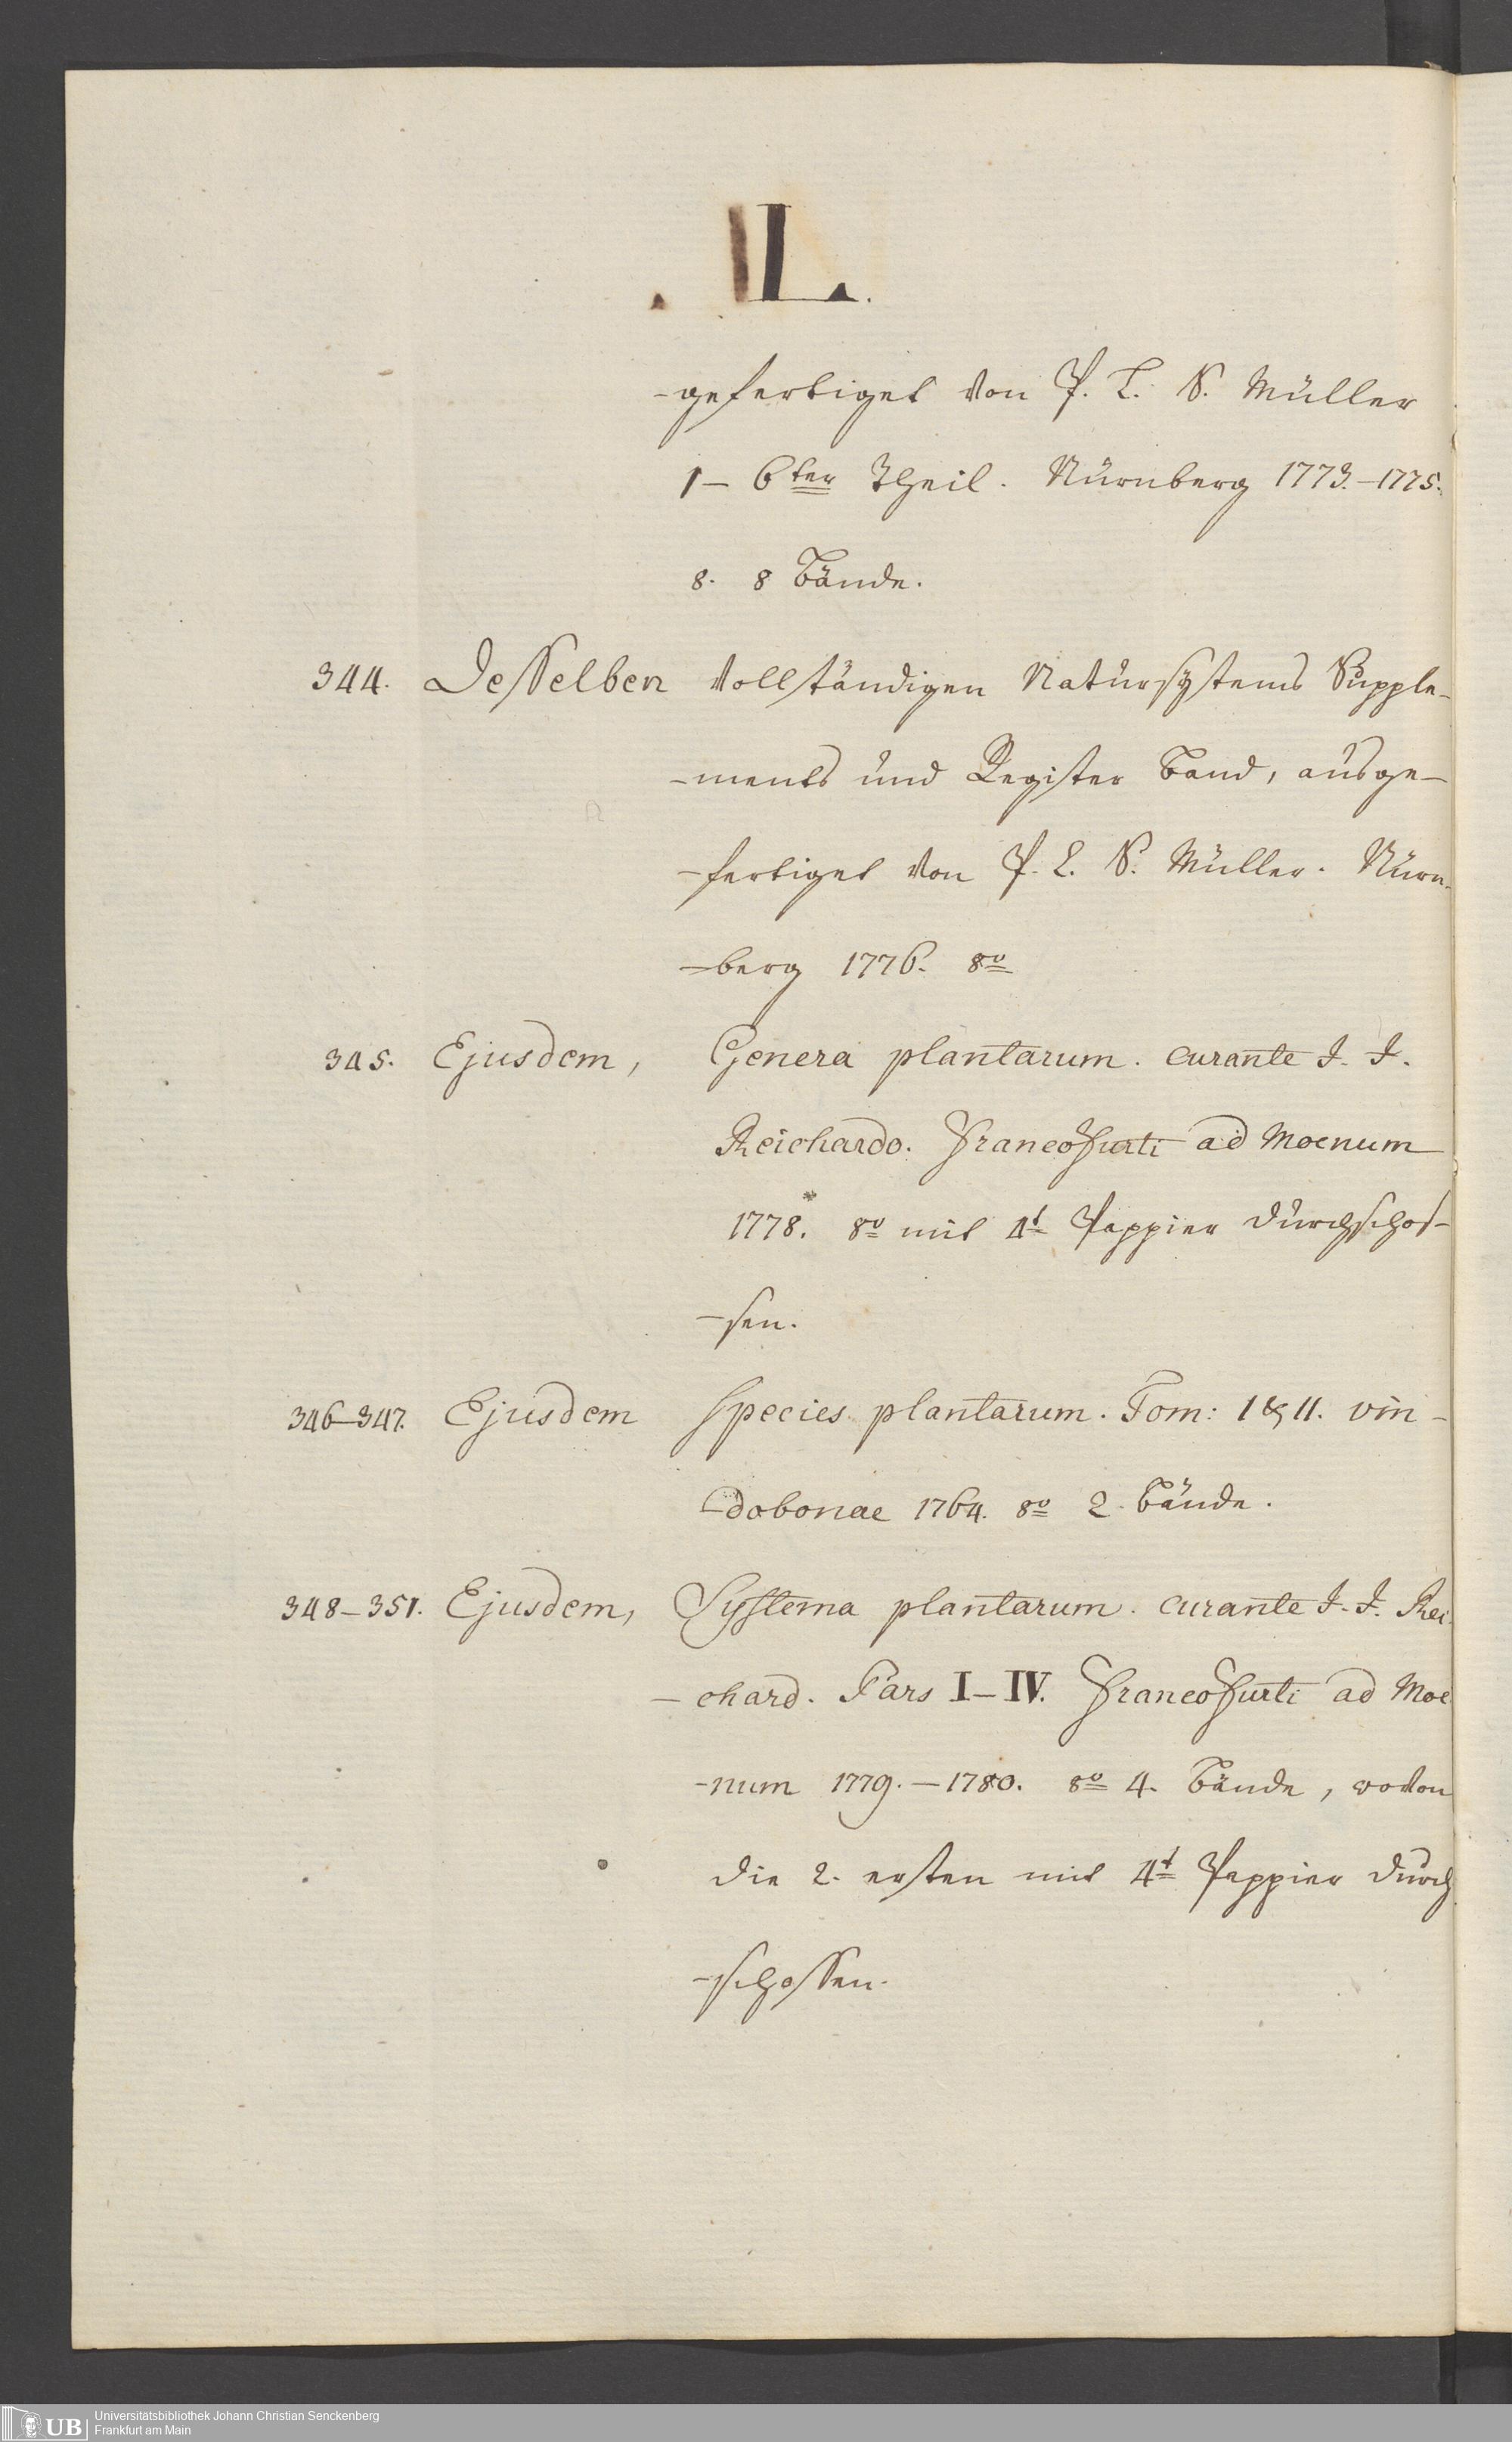 L.
-gefertiget von P. L. S. Müller
1- 6ter Theil. Nürnberg 1773.-1775.
8. 8 Bände.
344. Desselben vollständigen Natursystems Supple-
-ments und Register Band, ausge-
-fertiget von P. L. S. Müller. Nürn-
-berg 1776. 8o
345. Ejusdem, Genera plantarum. curante J. J.
Reichardo. Francofurti ad Moenum
1778. 8o mit 4t Pappier durchschos-
-sen.
346-347. Ejusdem Species plantarum. Tom: 1 & 11. vin-
-dobonae 1764. 8o 2. Bände.
348-351. Ejusdem, Systema plantarum. curante J. J. Rei-
-chard. Pars I-IV. Francofurti ad Moe
-num 1779.-1780. 8o 4. Bände, wovon
die 2. ersten mit 4t Pappier durch
-schossen.
UB
Universitätsbibliothek Johann Christian Senckenberg
Frankfurt am Main